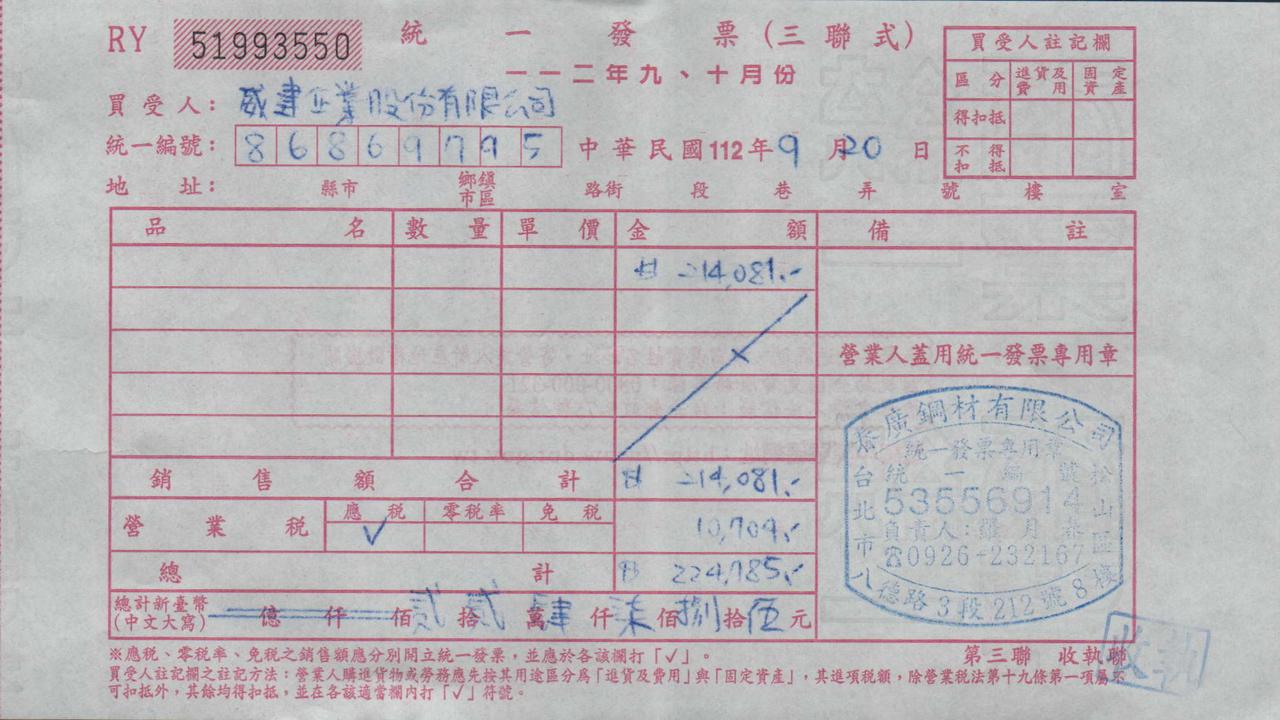 RY 51993550 統一發票(三聯式)
一一二年九、十月份
買受人註記欄
區分 進貨及費用 固定資產
得扣抵
不得扣抵
買受人：威建企業股份有限公司
統一編號：86869795 中華民國112年9月20日
地址： 縣市 鄉鎮市區 路街 段 巷 弄 號 樓 室
品名 數量 單價 金額 備註
214,081.-
營業人蓋用統一發票專用章
銷售額合計 214,081.-
營業稅 應稅 ✓ 零稅率 免稅 10,704.-
總計 224,785.-
總計新臺幣(中文大寫) 億 仟 佰 貳 拾 貳 萬 肆 仟 柒 佰 捌 拾 伍 元
廣鋼材有限公司
統一發票專用章
統一編號
53556914
負責人：羅月
☎0926-232167
台北市松山區
八德路3段212號8樓
※應稅、零稅率、免稅之銷售額應分別開立統一發票，並應於各該欄打「✓」。
第三聯 收執聯
收執
買受人註記欄之註記方法：營業人購進貨物或勞務應先按其用途區分為「進貨及費用」與「固定資產」，其進項稅額，除營業稅法第十九條第一項屬不
可扣抵外，其餘均得扣抵，並在各該適當欄內打「✓」符號。